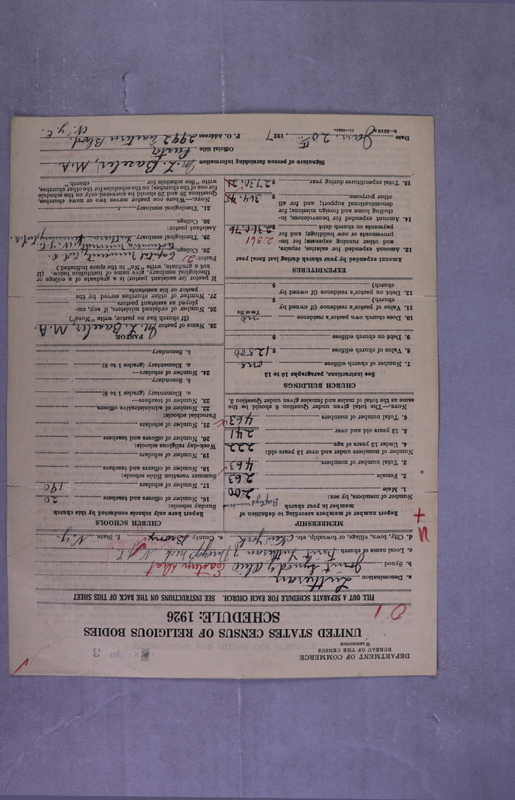 DEPARTMENT OF COMMERCE
BUREAU OF THE CENSUS
WASHINGTON
3
UNITED STATES CENSUS OF RELIGIOUS BODIES
SCHEDULE: 1926
FILL OUT A SEPARATE SCHEDULE FOR EACH CHURCH. SEE INSTRUCTIONS ON THE BACK OF THIS SHEET
a. Denomination Lutheran
b. Synod Joint Synod of Ohio Eastern Dist
c. Local name of church First Lutheran of Throggs Neck N.Y.C.
d. City, town, village, or township, etc. New York e. County Bronx f. State N.Y.
MEMBERSHIP
Report number of members according to definition of member in your church
Number of members, by sex:
1. Male 200
2. Female 263
3. Total number of members 463
Number of members under and over 13 years old:
4. Under 13 years of age 222
5. 13 years and over 241
6. Total number of members 463
NOTE.—The total given under question 6 should be the same as the total of males and females given under question 3.
CHURCH BUILDINGS
See instructions, paragraphs 10 to 12
7. Number of church edifices one
8. Value of church edifices $ 12,500
9. Debt on church edifices $
10. Does church own pastor's residence no
Yes or No
11. Value of pastor's residence (if owned by church) $
12. Debt on pastor's residence (if owned by church) $
EXPENDITURES
Amount expended by your church during last fiscal year
13. Amount expended for salaries, repairs, and other running expenses; for improvements or new building; and for payments on church debt
14. Amount expended for benevolences, including home and foreign missions; for denominational support; and for all other purposes
15. Total expenditures during year
CHURCH SCHOOLS
Report here only schools conducted by this church
Sunday schools:
16. Number of officers and teachers 20
17. Number of scholars 190
Summer vacation Bible schools:
18. Number of officers and teachers
19. Number of scholars
Week-day religious schools:
20. Number of officers and teachers
21. Number of scholars
Parochial schools:
22. Number of administrative officers
23. Number of teachers—
a. Elementary (grades 1 to 8)
b. Secondary
24. Number of scholars—
a. Elementary (grades 1 to 8)
b. Secondary
PASTOR
25. Name of pastor
(If church has no pastor, write "None")
26. Number of ordained ministers, if any, employed as assistant pastors
27. Number of other churches served by the pastor or his assistants
If pastor or assistant pastor is a graduate of a college or theological seminary, give name of institution below. (If not a graduate, write "No" in the space indicated.)
Pastor:
28. College
29. Theological seminary
Assistant pastor:
30. College
31. Theological seminary
Signature of person furnishing information
Official title Pastor
Date Jan. 20th, 1927 P. O. Address 2942 Eastern Blvd.
N.Y.C.